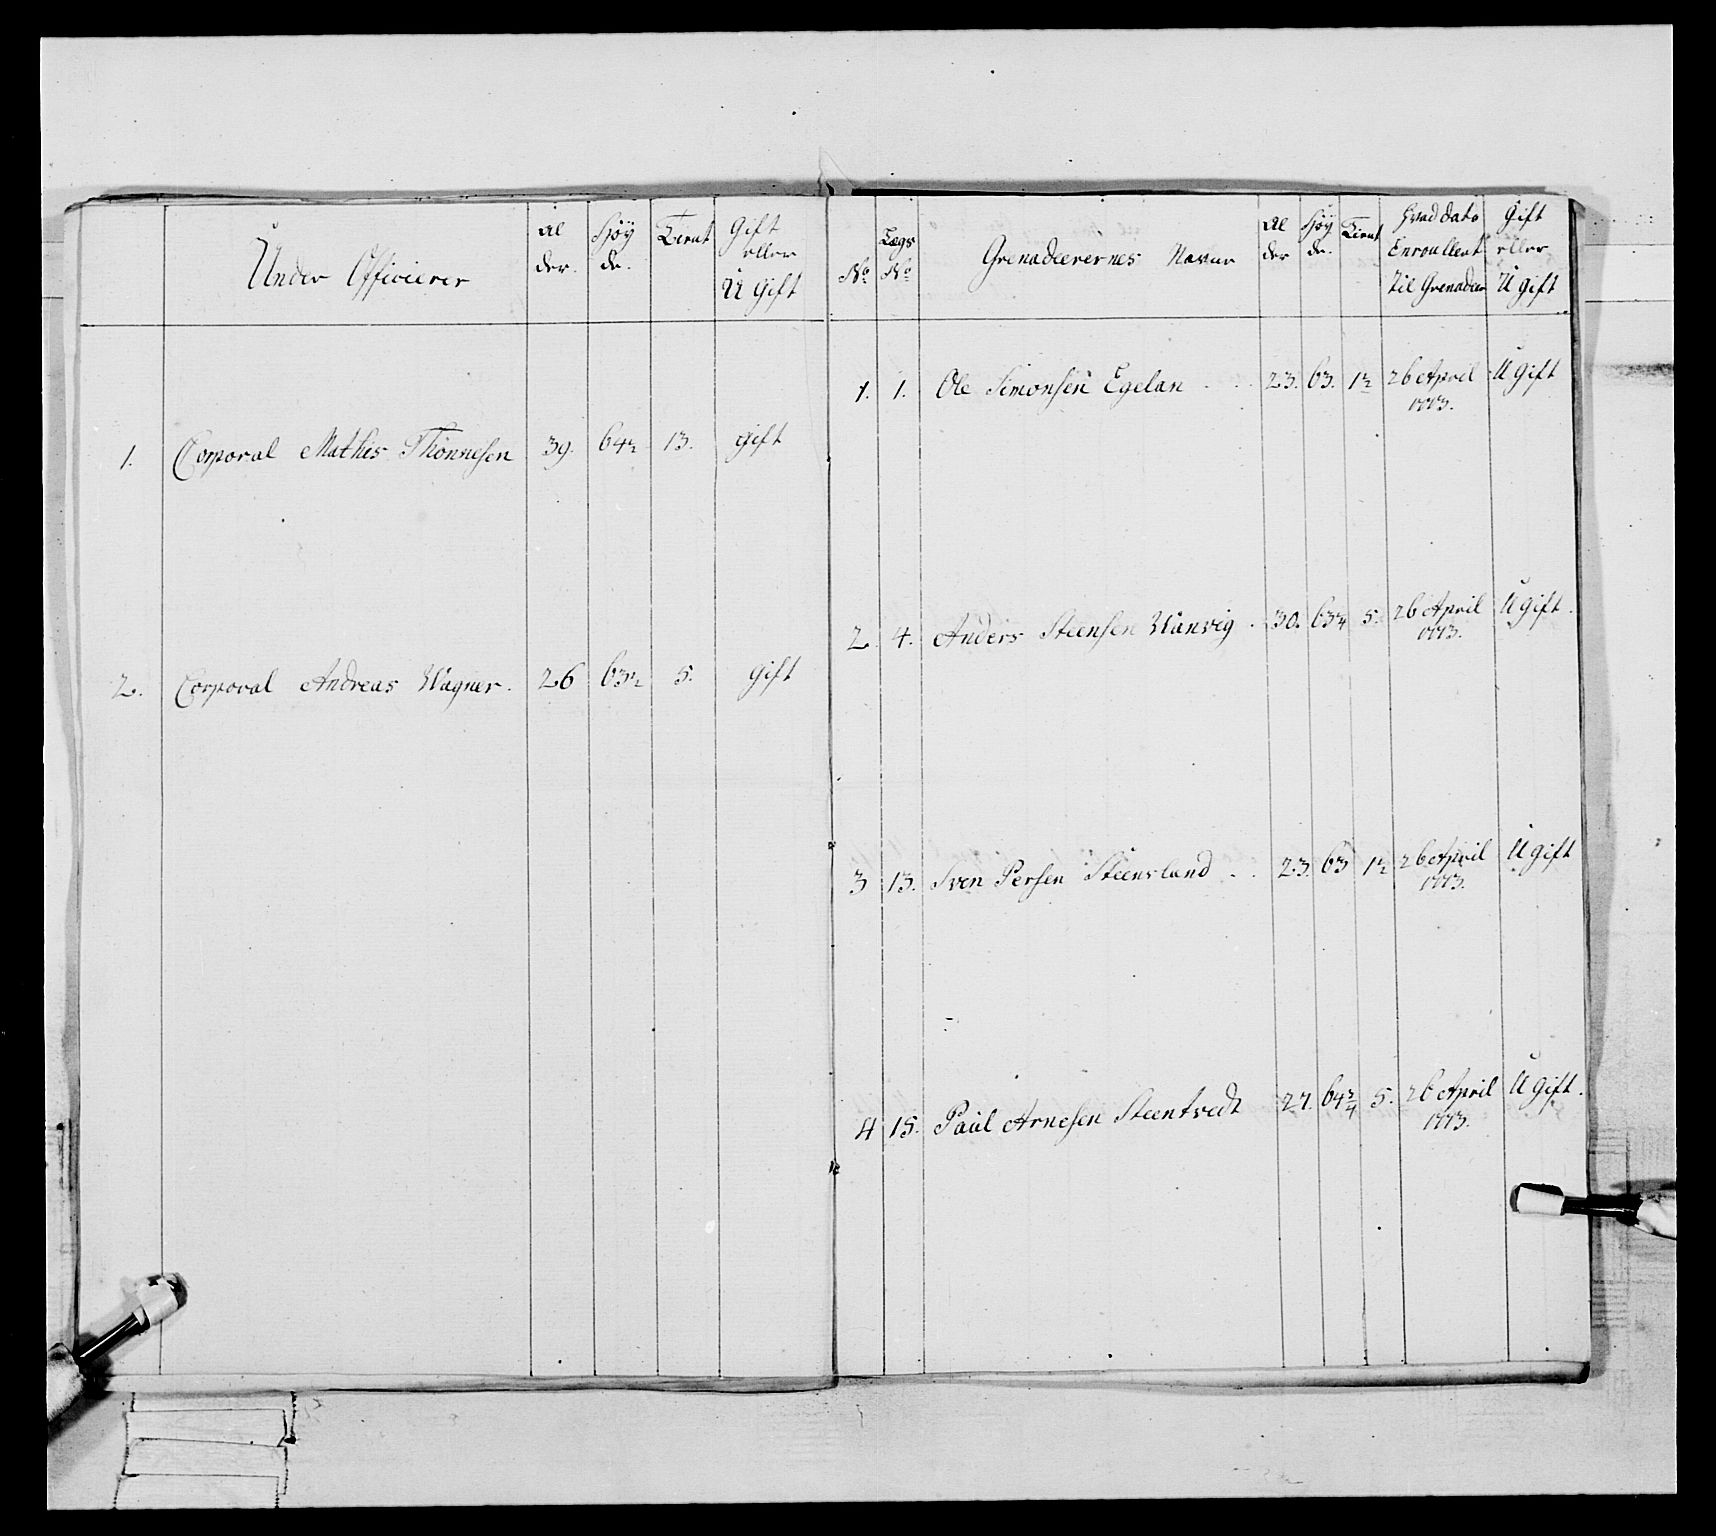 Under Officierer
Al
der.
Höy
de.
Tient
Gift
eller
U Gift
1. Corporal Mathis Thönnesen 39. 64½ 13. gift
2. Corporal Andreas Wagner. 26 63½ 5. gift
No.
Lægs
No.
Grenadeerernes Navne
Al
der
Höy
de.
Tient
Hvad dato
Enroullert
til Grenadeer
Gift
eller
U gift
1. 1. Ole Simonsen Egelan 23. 63. 1½ 26 April U gift
1773.
2. 4. Anders Steensen 30. 63¼ 5. 26 April U gift.
1773.
3 13. Sven Persen Steensland 23. 63 1½ 26 April U gift
1773.
4 15. Paul Arnesen Steentvedt 27. 64¾ 5. 26 April U gift.
1773.